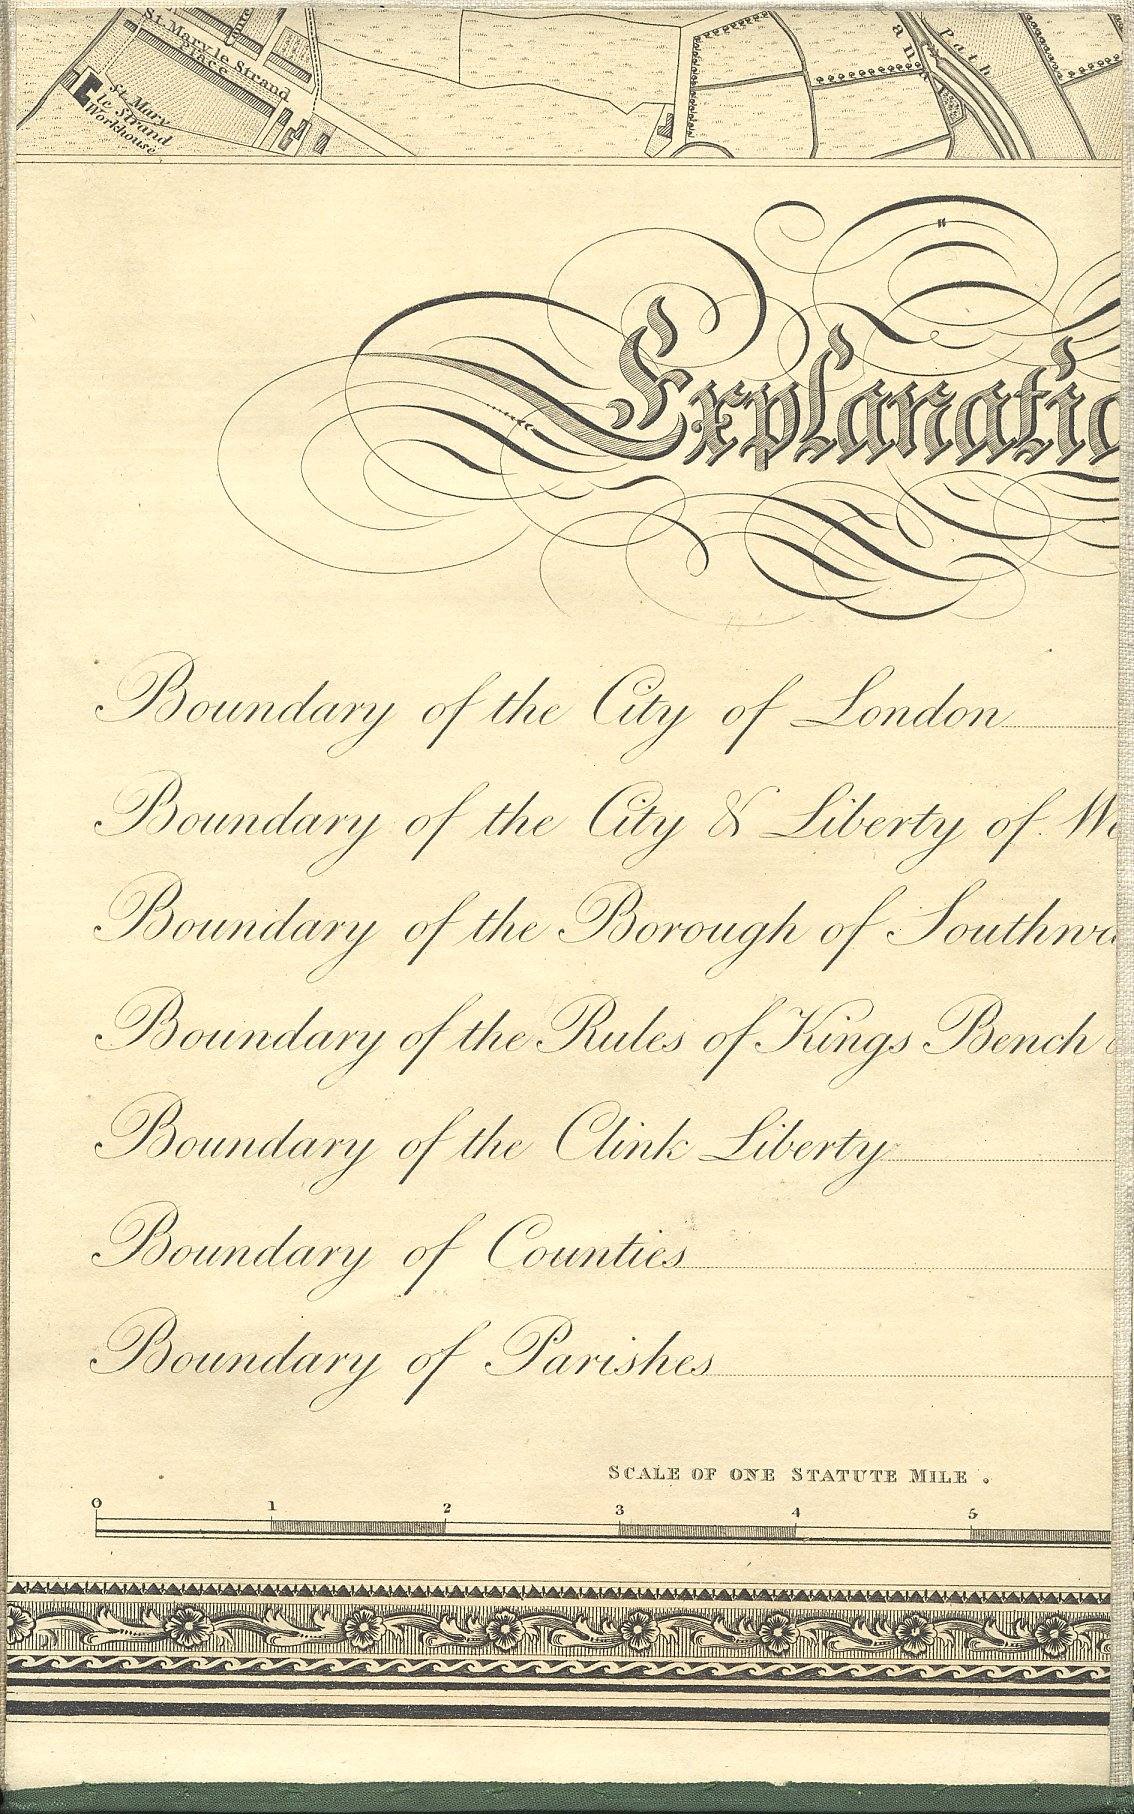 St. Mary le Strand
Place
St. Mary
le Strand
Workhouse
Path
Explanatio
Boundary of the City of London
Boundary of the City & Liberty of We
Boundary of the Borough of Southwa
Boundary of the Rules of Kings Bench
Boundary of the Clink Liberty
Boundary of Counties
Boundary of Parishes
SCALE OF ONE STATUTE MILE.
0 1 2 3 4 5